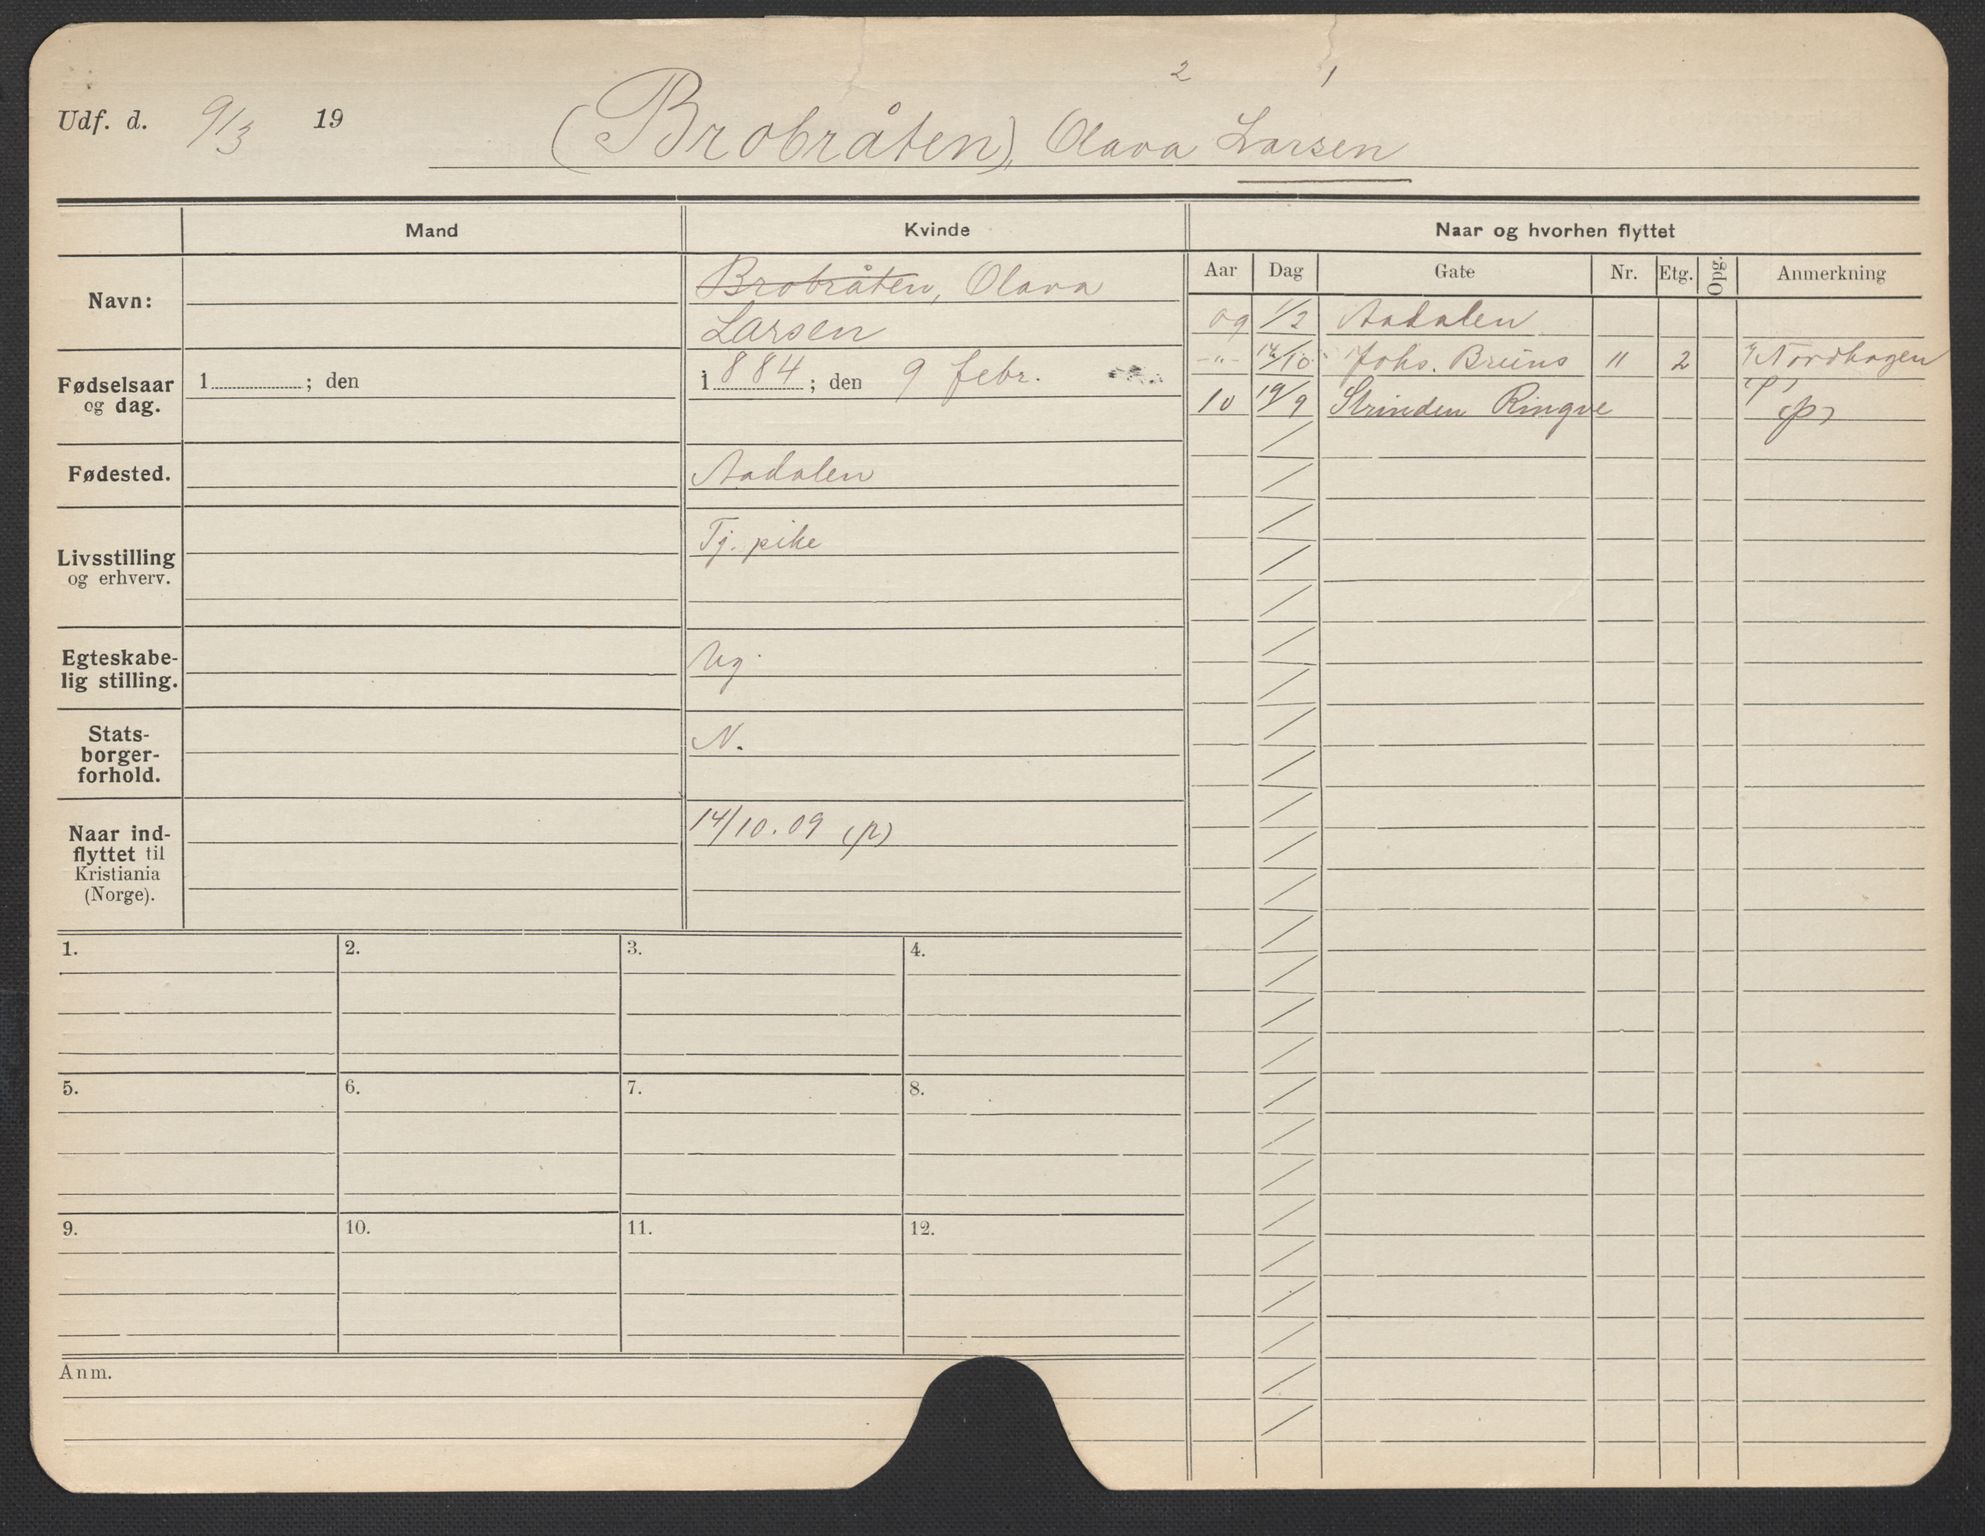 2 1
Udf. d. 9/3 19 (Brobråten), Olava Larsen
Mand Kvinde Naar og hvorhen flyttet
Aar Dag Gate Nr. Etg. Opg. Anmerkning
Navn: Brobråten, Olava
Larsen
Fødselsaar og dag. 1 ; den 1884 ; den 9 febr.
Fødested. Aadalen
Livsstilling og erhverv. Tj. pike
Egteskabe-
lig stilling. Ug.
Stats-
borger-
forhold. N.
Naar ind-
flyttet til
Kristiania
(Norge). 14/10.09 (p)
09 1/2 Aadalen
-"- 14/10 Johs. Bruns 11 2 Nordhagen
(p)
10 19/9 Strinden Ringve (p)
1. 2. 3. 4.
5. 6. 7. 8.
9. 10. 11. 12.
Anm.